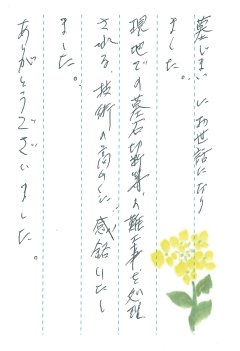 墓じまいにお世話になり
ました。
現地での墓石切断等の難工事を処理
される、技術の高のさに感銘いたし
ました。
ありがとうございました。